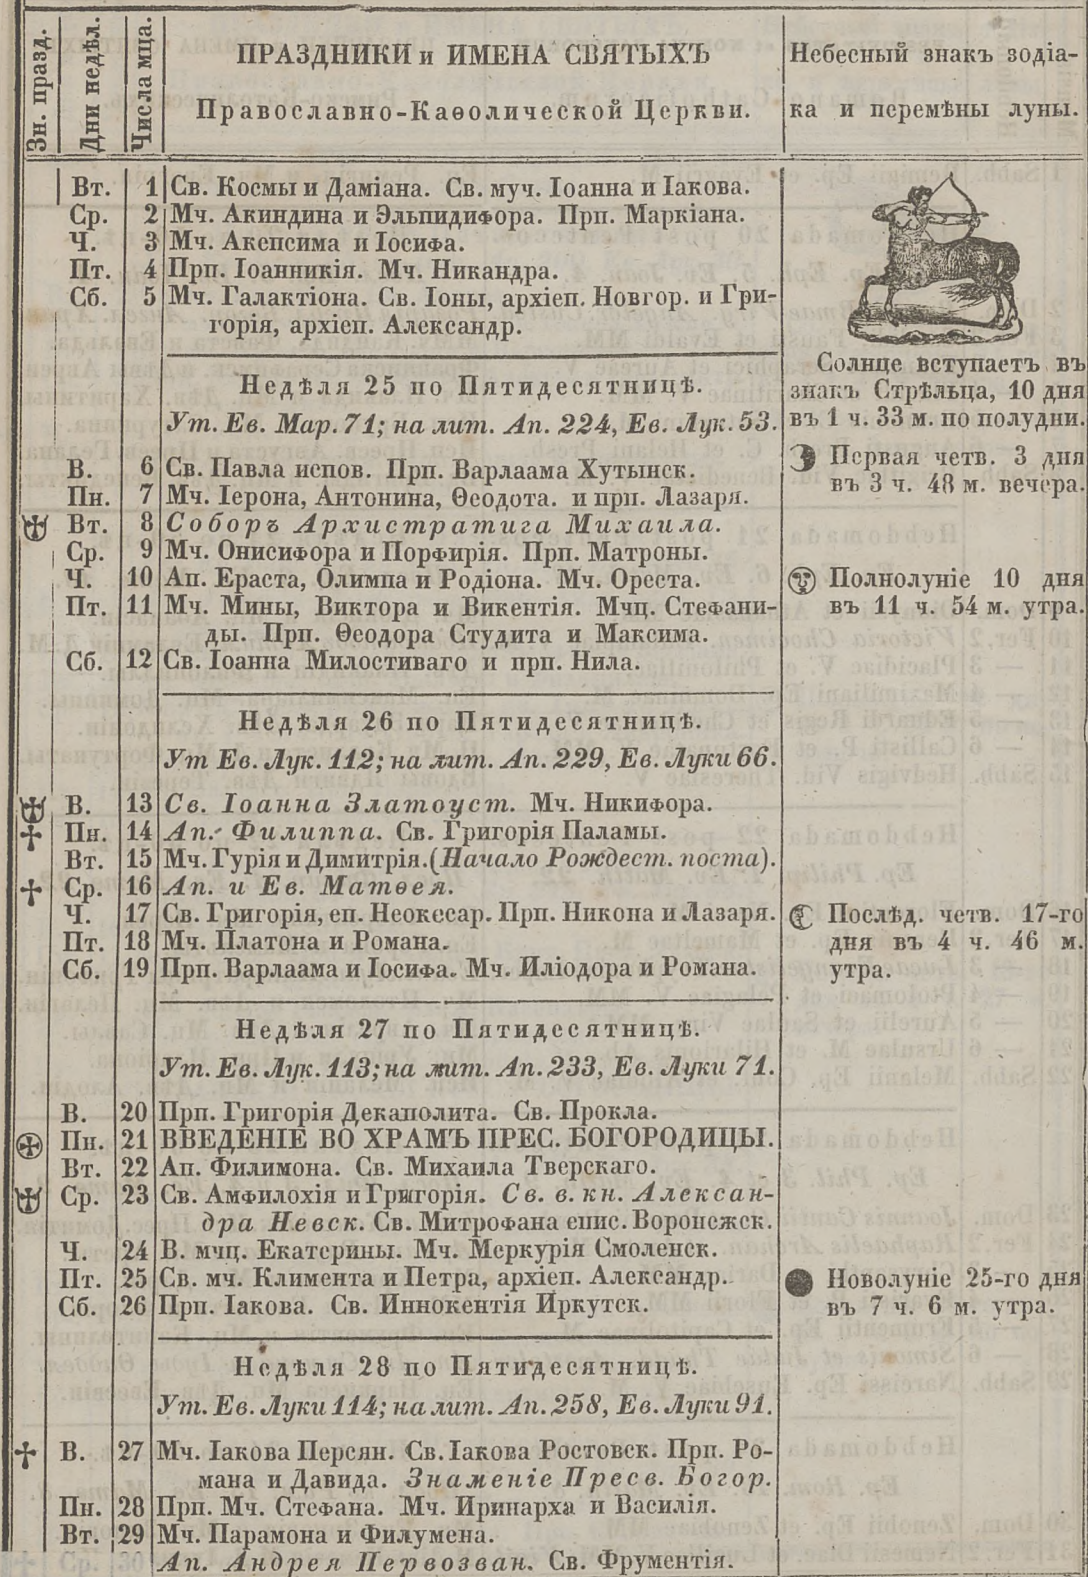 Зн. празд.
Дни недѣл.
Числа мца.
ПРАЗДНИКИ и ИМЕНА СВЯТЫХЪ
Православно-Каѳолической Церкви.
Небесный знакъ зодіа-
ка и перемѣны луны.
Вт. 1 Св. Космы и Даміана. Св. муч. Іоанна и Іакова.
Ср. 2 Мч. Акиндина и Эльпидифора. Прп. Маркіана.
Ч. 3 Мч. Акепсима и Іосифа.
Пт. 4 Прп. Іоанникія. Мч. Никандра.
Сб. 5 Мч. Галактіона. Св. Іоны, архіеп. Новгор. и Гри-
горія, архіеп. Александр.
Недѣля 25 по Пятидесятницѣ.
Ут. Ев. Мар. 71; на лит. Ап. 224, Ев. Лук. 53.
В. 6 Св. Павла испов. Прп. Варлаама Хутынск.
Пн. 7 Мч. Іерона, Антонина, Ѳеодота. и прп. Лазаря.
Вт. 8 Соборъ Архистратига Михаила.
Ср. 9 Мч. Онисифора и Порфирія. Прп. Матроны.
Ч. 10 Ап. Ераста, Олимпа и Родіона. Мч. Ореста.
Пт. 11 Мч. Мины, Виктора и Викентія. Мчц. Стефани-
ды. Прп. Ѳеодора Студита и Максима.
Сб. 12 Св. Іоанна Милостиваго и прп. Нила.
Недѣля 26 по Пятидесятницѣ.
Ут Ев. Лук. 112; на лит. Ап. 229, Ев. Луки 66.
В. 13 Св. Іоанна Златоуст. Мч. Никифора.
Пн. 14 Ап. Филиппа. Св. Григорія Паламы.
Вт. 15 Мч. Гурія и Димитрія. (Начало Рождест. поста).
Ср. 16 Ап. и Ев. Матѳея.
Ч. 17 Св. Григорія, еп. Неокесар. Прп. Никона и Лазаря.
Пт. 18 Мч. Платона и Романа.
Сб. 19 Прп. Варлаама и Іосифа. Мч. Иліодора и Романа.
Недѣля 27 по Пятидесятницѣ.
Ут. Ев. Лук. 113; на лит. Ап. 233, Ев. Луки 71.
В. 20 Прп. Григорія Декаполита. Св. Прокла.
Пн. 21 ВВЕДЕНІЕ ВО ХРАМЪ ПРЕС. БОГОРОДИЦЫ.
Вт. 22 Ап. Филимона. Св. Михаила Тверскаго.
Ср. 23 Св. Амфилохія и Григорія. Св. в. кн. Алексан-
дра Невск. Св. Митрофана епис. Воронежск.
Ч. 24 В. мчц. Екатерины. Мч. Меркурія Смоленск.
Пт. 25 Св. мч. Климента и Петра, архіеп. Александр.
Сб. 26 Прп. Іакова. Св. Иннокентія Иркутск.
Недѣля 28 по Пятидесятницѣ.
Ут. Ев. Луки 114; на лит. Ап. 258, Ев. Луки 91.
В. 27 Мч. Іакова Персян. Св. Іакова Ростовск. Прп. Ро-
мана и Давида. Знаменіе Пресв. Богор.
Пн. 28 Прп. Мч. Стефана. Мч. Иринарха и Василія.
Вт. 29 Мч. Парамона и Филумена.
Ср. 30 Ап. Андрея Первозван. Св. Фрументія.
Солнце вступаетъ въ
знакъ Стрѣльца, 10 дня
въ 1 ч. 33 м. по полудни.
Первая четв. 3 дня
въ 3 ч. 48 м. вечера.
Полнолуніе 10 дня
въ 11 ч. 54 м. утра.
Послѣд. четв. 17-го
дня въ 4 ч. 46 м.
утра.
Новолуніе 25-го дня
въ 7 ч. 6 м. утра.